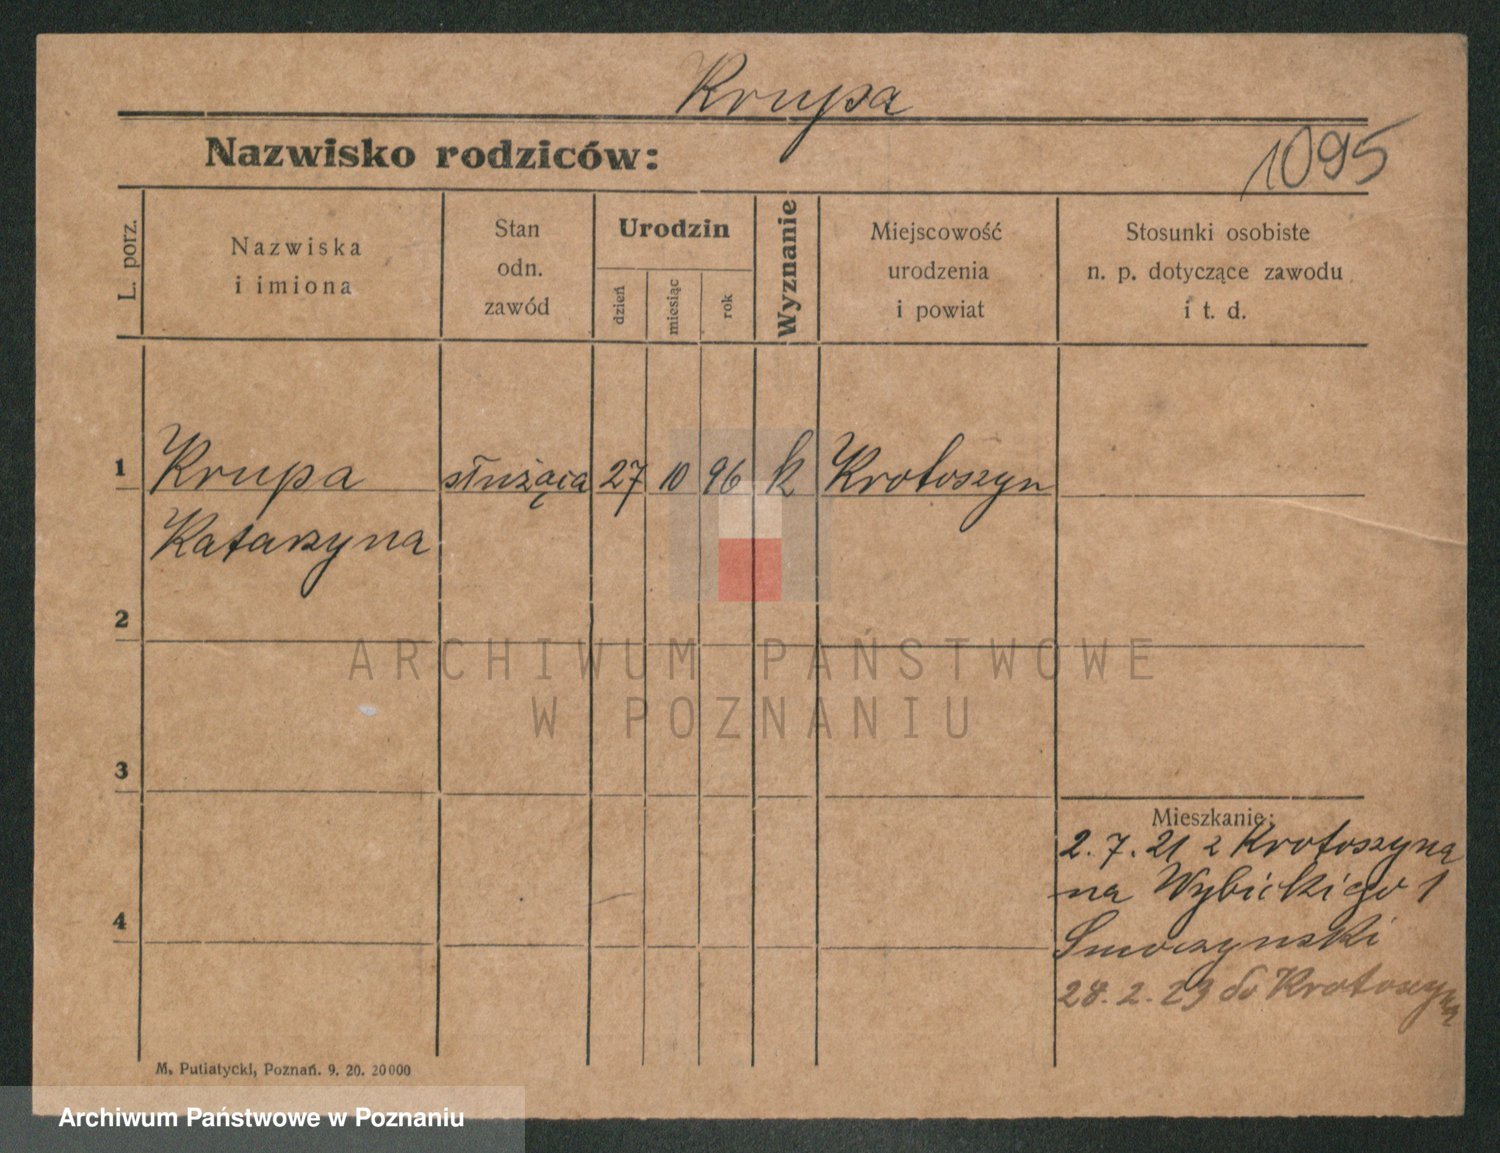 Krupa
Nazwisko rodziców:
1095
L. porz.
Nazwiska
i imiona
Stan
odn.
zawód
Urodzin
dzień
miesiąc
rok
Wyznanie
Miejscowość
urodzenia
i powiat
Stosunki osobiste
n. p. dotyczące zawodu
i t. d.
1 Krupa służąca 27 10 96 k Krotoszyn
Katarzyna
2
ARCHIWUM PAŃSTWOWE
W POZNANIU
3
Mieszkanie:
2.7.21 z Krotoszyna
na Wybickiego 1
4
Smoczynski
28.2.23 do Krotoszyna
M. Putiatycki, Poznań. 9. 20. 20000
Archiwum Państwowe w Poznaniu